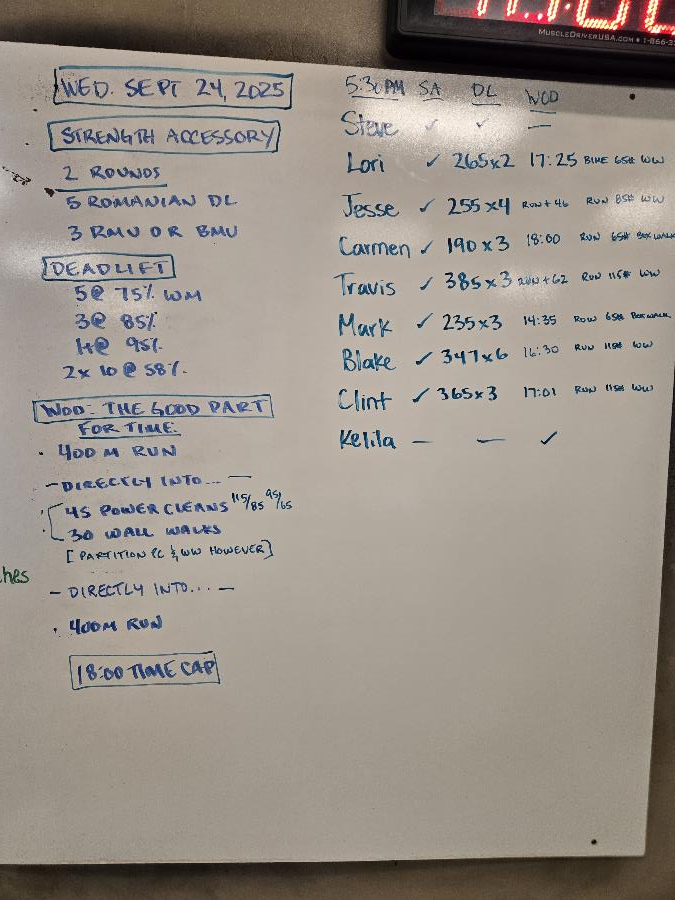 WED. SEPT 24, 2025
STRENGTH ACCESSORY
2 ROUNDS
5 ROMANIAN DL
3 RMU OR BMU
DEADLIFT
5@ 75% WM
3@ 85%
1+@ 95%
2x 10 @ 58%
WOD: THE GOOD PART
FOR TIME:
• 400 M RUN
— DIRECTLY INTO... —
45 POWER CLEANS 115/85 95/65
30 WALL WALKS
[PARTITION PC & WW HOWEVER]
— DIRECTLY INTO... —
• 400M RUN
18:00 TIME CAP
hes
5:30PM SA DL WOD
Steve ✓ ✓ —
Lori ✓ 265x2 17:25 BIKE 65# WW
Jesse ✓ 255x4 RUN+46 RUN 85# WW
Carmen ✓ 190x3 18:00 RUN 65# BOX WALK
Travis ✓ 385x3 RUN+62 RUN 115# WW
Mark ✓ 235x3 14:35 ROW 65# BOX WALK
Blake ✓ 347x6 16:30 RUN 115# WW
Clint ✓ 365x3 17:01 RUN 115# WW
Kelila — — ✓
MUSCLEDRIVERUSA.COM • 1-866-2